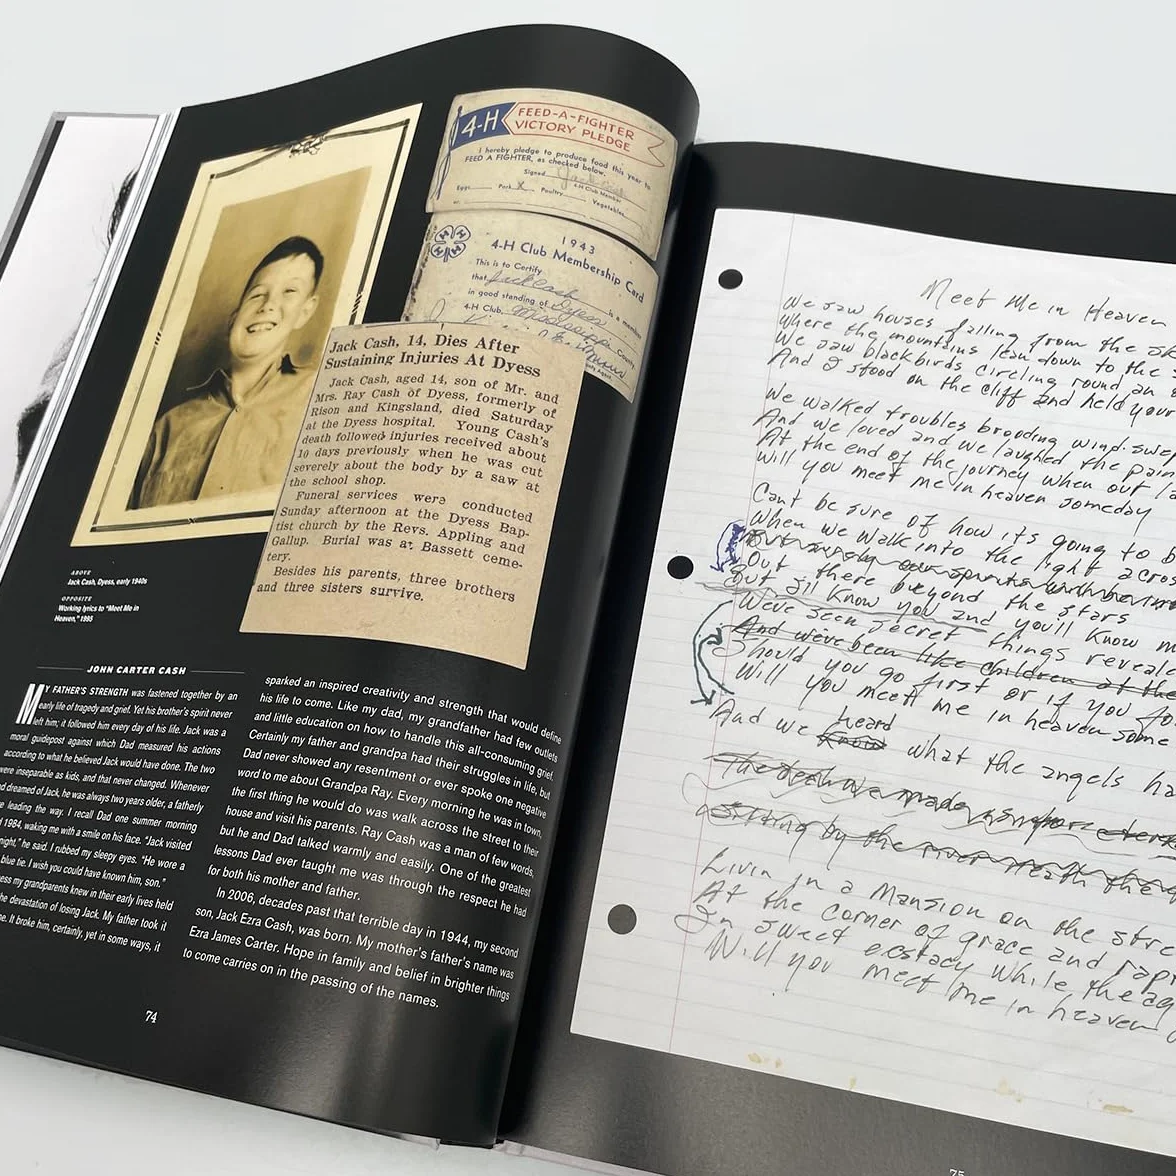 4-H
FEED-A-FIGHTER
VICTORY PLEDGE
I hereby pledge to produce food this year to
FEED A FIGHTER, as checked below.
Signed
4-H Club Member
Eggs Pork X Poultry Vegetables
1943
4-H Club Membership Card
This is to Certify
that Jack Cash
in good standing of Dyess is a member
4-H Club, Mississippi County,
Jack Cash, 14, Dies After
Sustaining Injuries At Dyess
Jack Cash, aged 14, son of Mr. and
Mrs. Ray Cash of Dyess, formerly of
Rison and Kingsland, died Saturday
at the Dyess hospital. Young Cash's
death followed injuries received about
10 days previously when he was cut
severely about the body by a saw at
the school shop.
Funeral services were conducted
Sunday afternoon at the Dyess Bap-
tist church by the Revs. Appling and
Gallup. Burial was at Bassett ceme-
tery.
Besides his parents, three brothers
and three sisters survive.
ABOVE
Jack Cash, Dyess, early 1940s
OPPOSITE
Working lyrics to "Meet Me in
Heaven," 1995
JOHN CARTER CASH
MY FATHER'S STRENGTH was fastened together by an
early life of tragedy and grief. Yet his brother's spirit never
left him; it followed him every day of his life. Jack was a
moral guidepost against which Dad measured his actions
according to what he believed Jack would have done. The two
were inseparable as kids, and that never changed. Whenever
dreamed of Jack, he was always two years older, a fatherly
leading the way. I recall Dad one summer morning
1984, waking me with a smile on his face. "Jack visited
night," he said. I rubbed my sleepy eyes. "He wore a
blue tie. I wish you could have known him, son."
my grandparents knew in their early lives held
the devastation of losing Jack. My father took it
It broke him, certainly, yet in some ways, it
sparked an inspired creativity and strength that would define
his life to come. Like my dad, my grandfather had few outlets
and little education on how to handle this all-consuming grief.
Certainly my father and grandpa had their struggles in life, but
Dad never showed any resentment or ever spoke one negative
word to me about Grandpa Ray. Every morning he was in town,
the first thing he would do was walk across the street to their
house and visit his parents. Ray Cash was a man of few words,
but he and Dad talked warmly and easily. One of the greatest
lessons Dad ever taught me was through the respect he had
for both his mother and father.
In 2006, decades past that terrible day in 1944, my second
son, Jack Ezra Cash, was born. My mother's father's name was
Ezra James Carter. Hope in family and belief in brighter things
to come carries on in the passing of the names.
74
Meet Me in Heaven
We saw houses falling from the
Where the mountains lean down to the
We saw blackbirds circling round an
And I stood on the cliff and held your
We walked troubles brooding wind-swept
And we loved and we laughed the pain
At the end of the journey when our
Will you meet me in heaven someday
Can't be sure of how it's going to
When we walk into the light across
Out there beyond the stars
But I'll know you and you'll know
We've seen secret things revealed
And we've been like children at the
Should you go first or if you
Will you meet me in heaven some
heard
And we know what the angels
Livin in a mansion on the
At the corner of grace and
In sweet ecstacy while the
Will you meet me in heaven
75